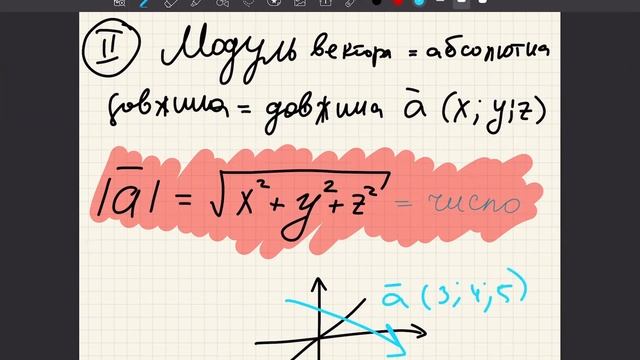 II Модуль вектора = абсолютна
довжина = довжина ā (x; y; z)
|ā| = √x² + y² + z² = число
ā (3; 4; 5)